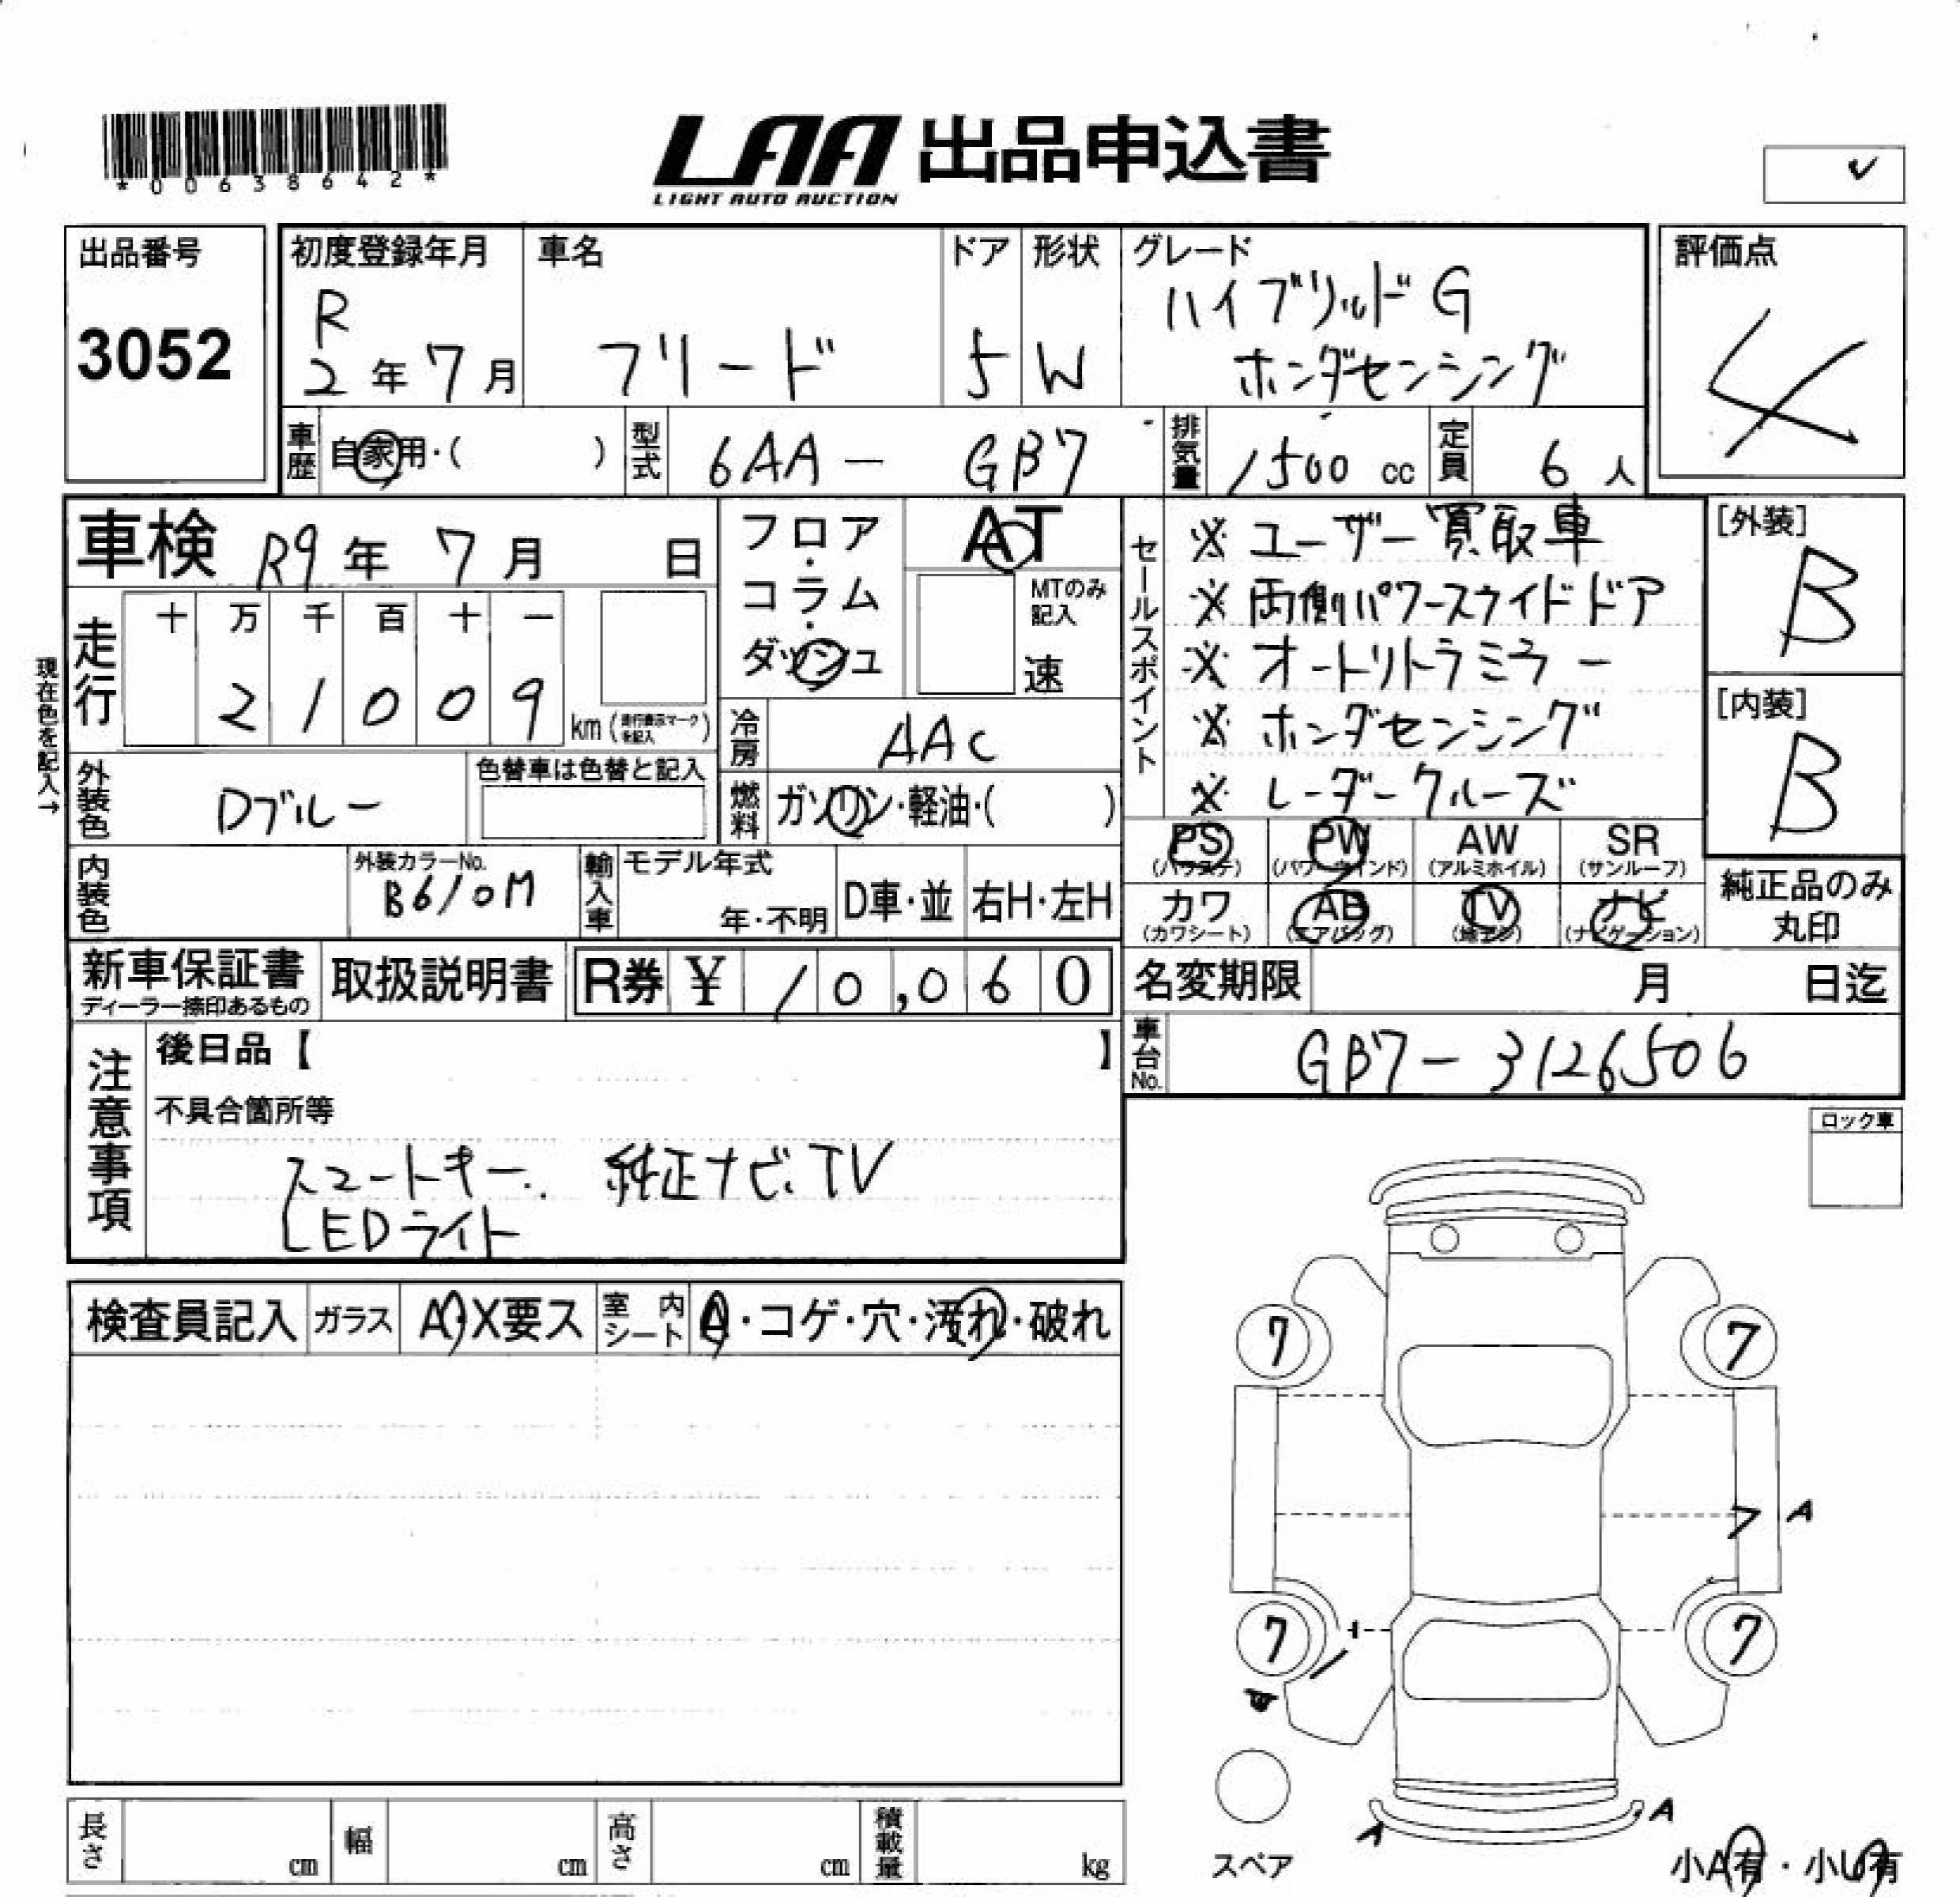 *00638642*
LAA 出品申込書
LIGHT AUTO AUCTION
出品番号
3052
初度登録年月
R
2年7月
車名
フリード
ドア
5
形状
W
グレード
ハイブリッドG
ホンダセンシング
評価点
4
車歴
自家用・( )
型式
6AA - GB7
排気量
1500 cc
定員
6人
車検 R9年 7月 日
フロア・コラム・ダッシュ
AT
MTのみ記入
速
セールスポイント
※ ユーザー買取車
※ 両側パワースライドドア
※ オートリトラミラー
※ ホンダセンシング
※ レーダークルーズ
[外装]
B
[内装]
B
現在色を記入→
走行
十 万 千 百 十 一
2 1 0 0 9 km (走行表示マークを記入)
冷房
AAC
外装色
Dブルー
色替車は色替と記入
燃料
ガソリン・軽油・( )
内装色
外装カラーNo.
B610M
輸入車
モデル年式
年・不明
D車・並
右H・左H
PS (パワステ)
PW (パワーウインド)
AW (アルミホイル)
SR (サンルーフ)
カワ (カワシート)
AB (エアバッグ)
TV
ナビ (ナビゲーション)
純正品のみ
丸印
新車保証書
ディーラー捺印あるもの
取扱説明書
R券 ¥ 10,060
名変期限 月 日迄
車台No.
GB7-3126506
注意事項
後日品【 】
不具合箇所等
スマートキー. 純正ナビ.TV
LEDライト
ロック車
検査員記入
ガラス
A・X要ス
室内シート
A・コゲ・穴・汚れ・破れ
7 7
7 A
7 7
A A
スペア
小A有・小U有
長さ cm
幅 cm
高さ cm
積載量 kg